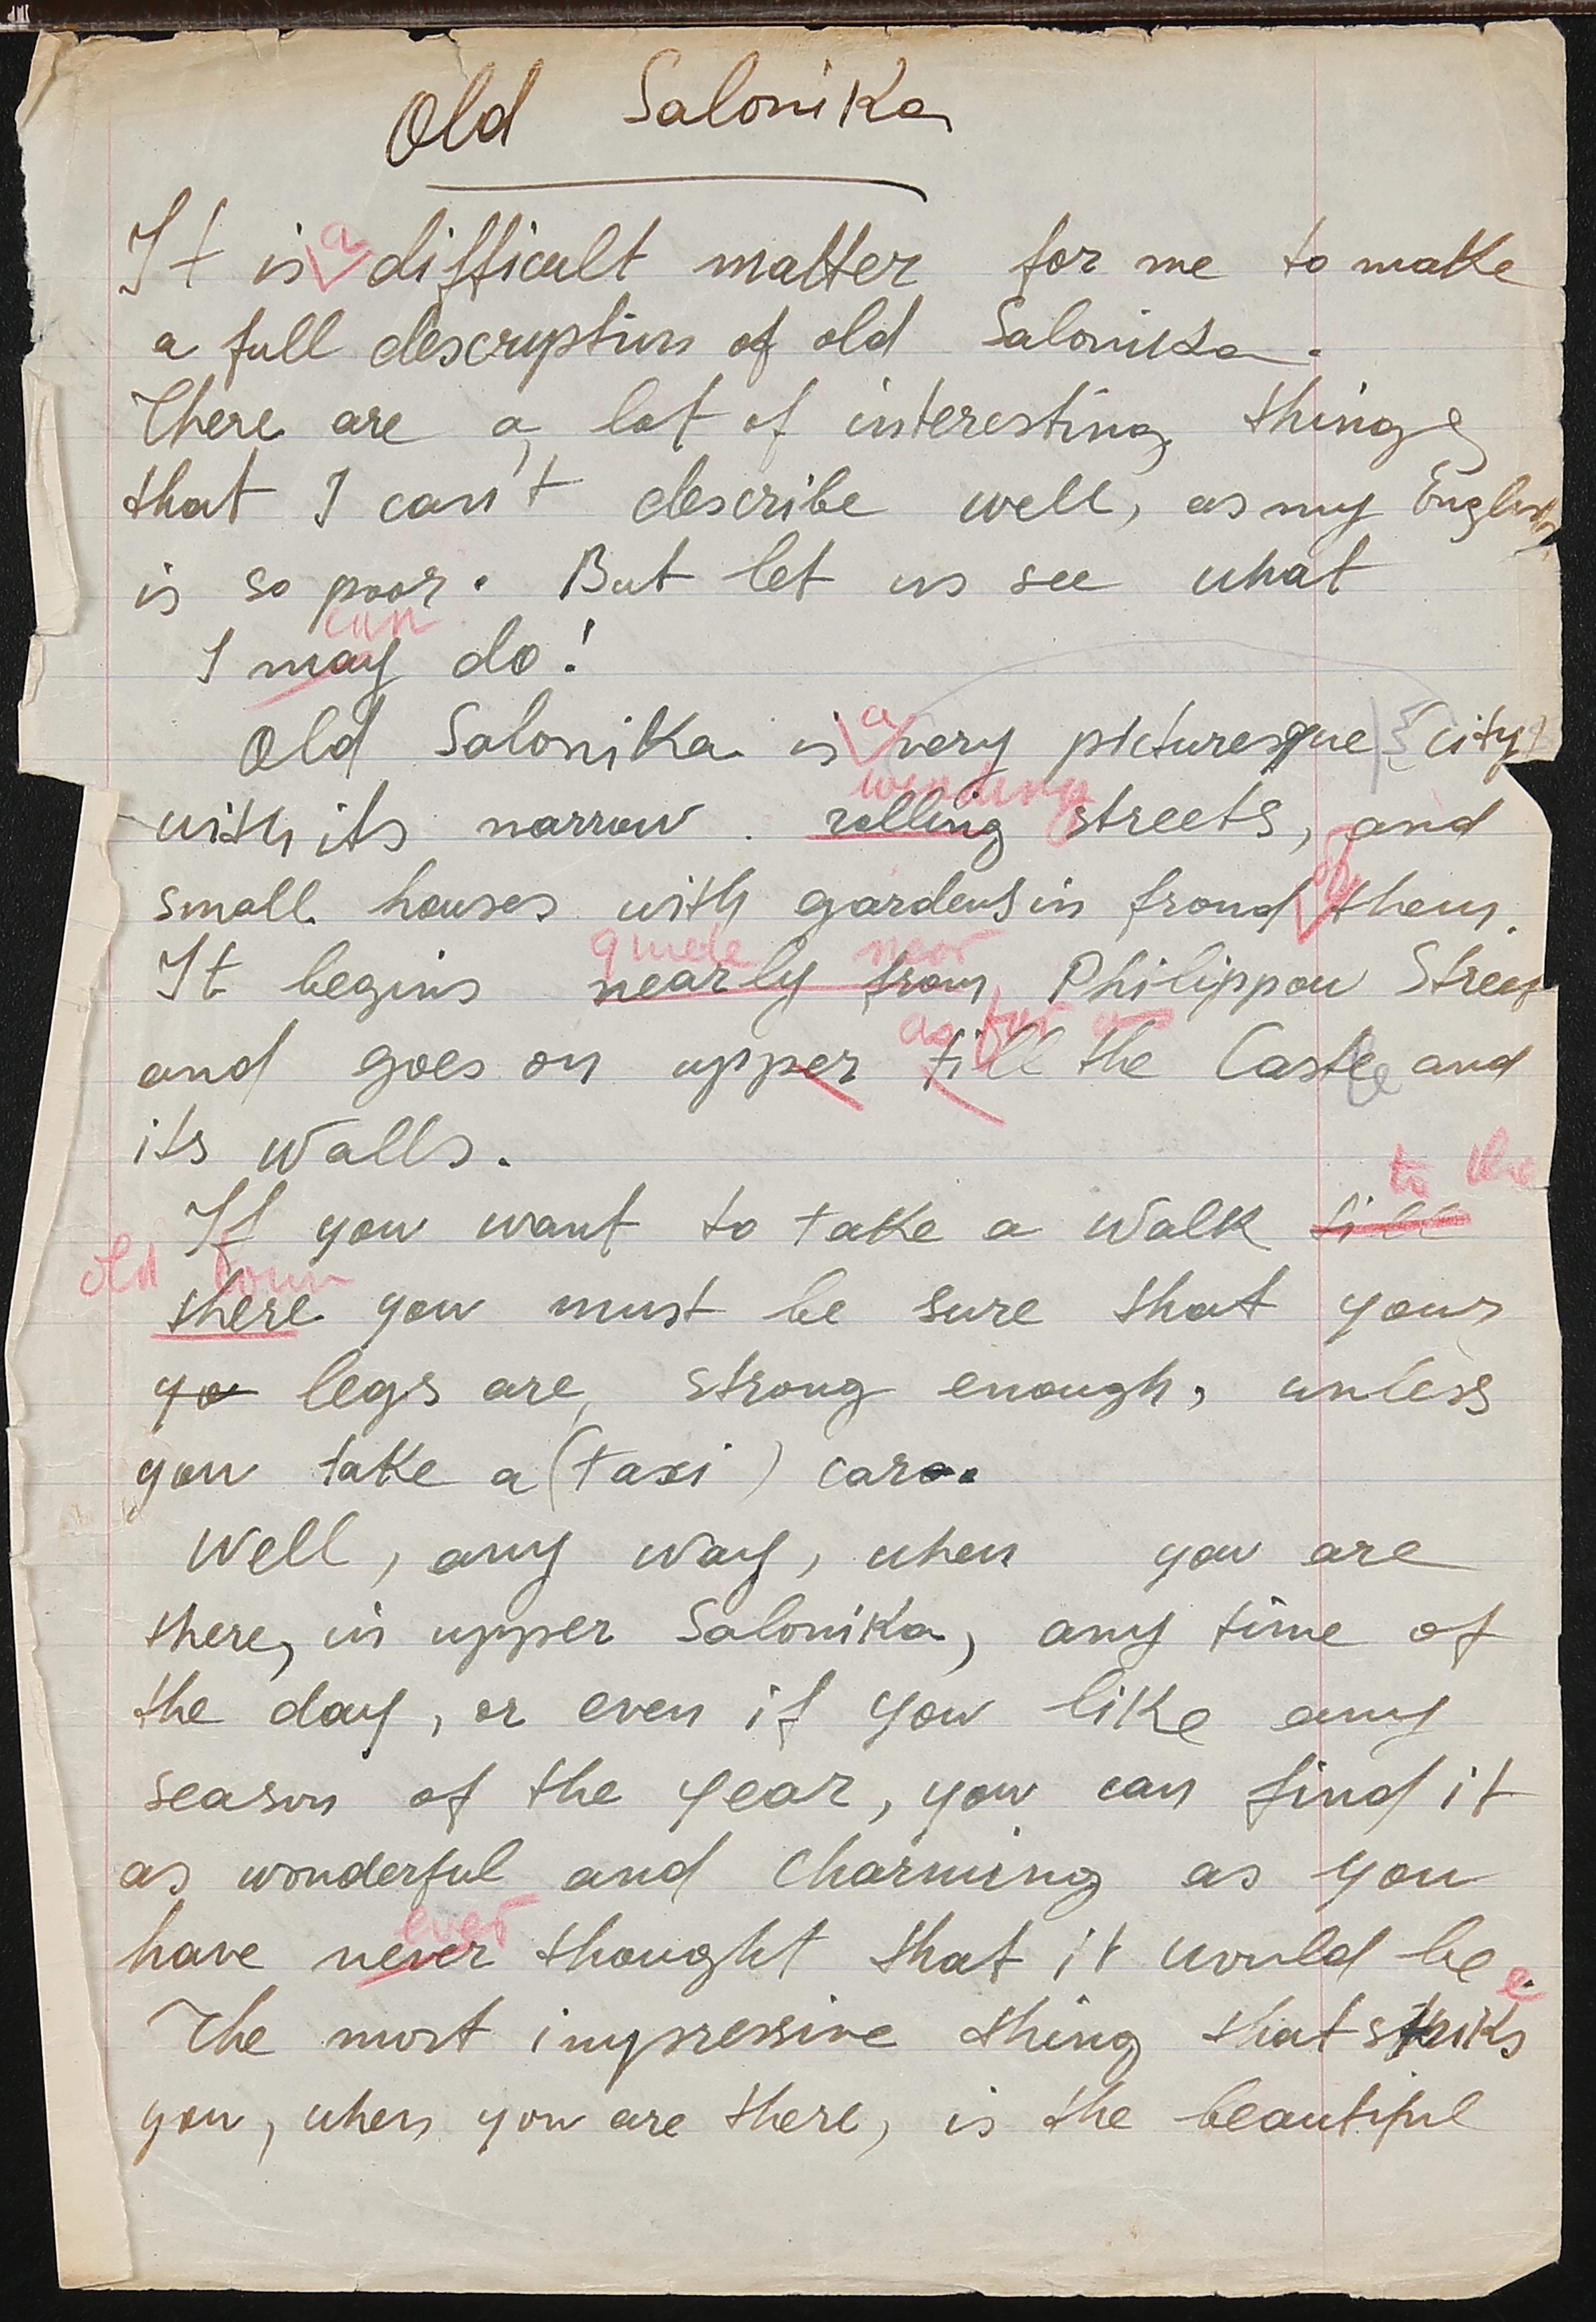 Old Salonika
a
It is difficult matter for me to make
a full description of old Salonika.
There are a lot of interesting things
that I can't describe well, as my English
is so poor. But let us see what
can
I may do!
a
Old Salonika is very picturesque city
winding
with its narrow rolling streets, and
of
small houses with gardens in frond them.
quiete near
It begins nearly from Philippou Street
as far as
and goes on upper till the Castle and
its walls.
to the
If you want to take a walk till
old town
there you must be sure that your
yo legs are, strong enough, unless
you take a (taxi) car..
Well, any way, when you are
there, in upper Salonika, any time of
the day, or even if you like any
season of the year, you can find it
as wonderful and charming as you
ever
have never thought that it would be.
e
The most impressive thing that striks
you, when you are there, is the beautiful